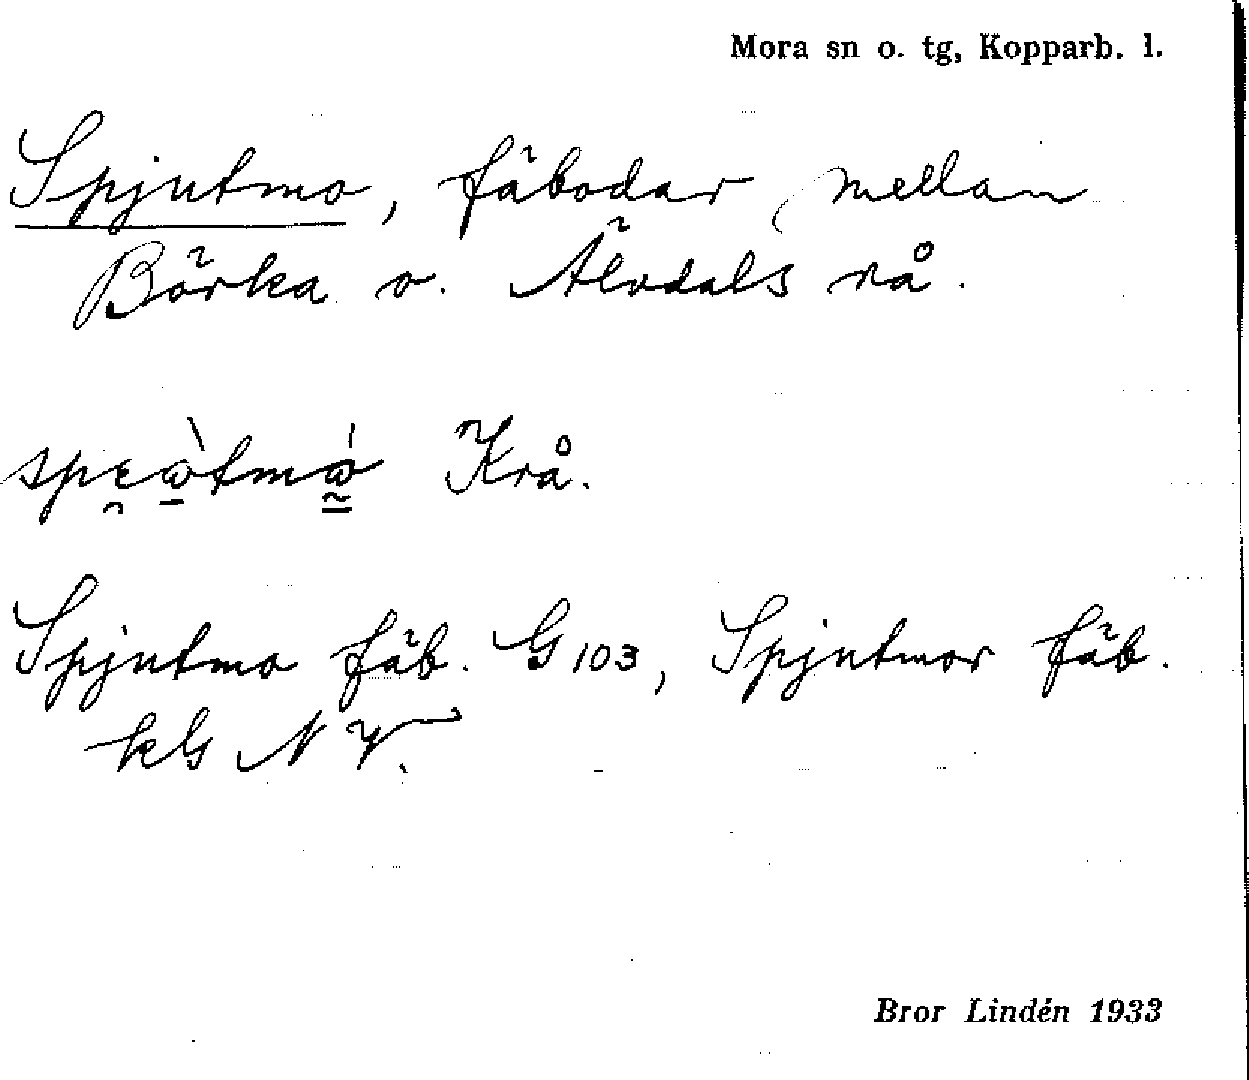 Mora sn o. tg, Kopparb. l.
Spjutmo, fäbodar, mellan
Börka o. Älvdals rå.
Krå.
Spjutmo fäb. G 103, Spjutmor fäb.
kG NV.
Bror Lindén 1933